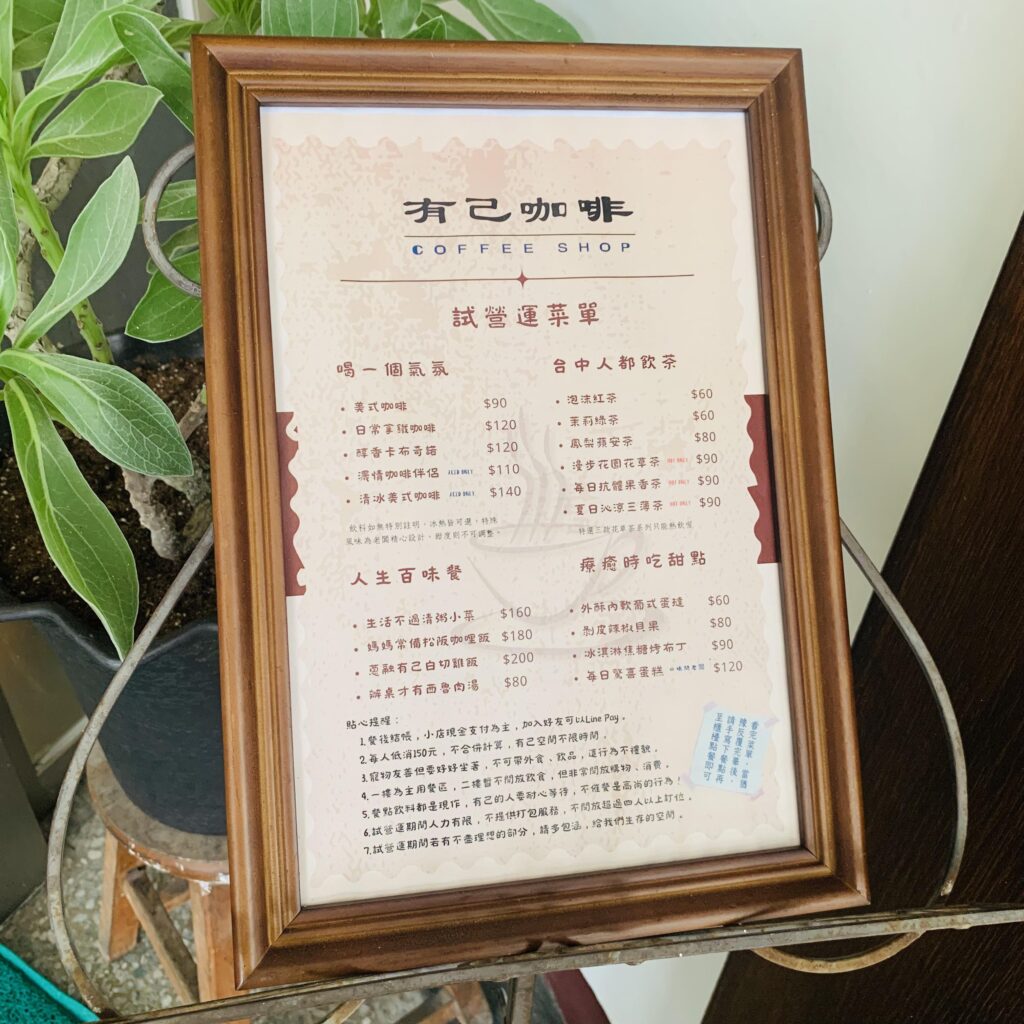 有己咖啡
COFFEE SHOP
試營運菜單
喝一個氣氛
• 美式咖啡 $90
• 日常拿鐵咖啡 $120
• 醇香卡布奇諾 $120
• 濃情咖啡伴侶 ICED ONLY $110
• 清冰美式咖啡 ICED ONLY $140
飲料如無特別註明，冰熱皆可選，特殊
風味為老闆精心設計，甜度則不可調整。
台中人都飲茶
• 泡沫紅茶 $60
• 茉莉綠茶 $60
• 鳳梨蘋安茶 $80
• 漫步花園花草茶 HOT ONLY $90
• 每日抗體果香茶 HOT ONLY $90
• 夏日沁涼三薄茶 HOT ONLY $90
特選三款花草茶系列只限熱飲喔
人生百味餐
• 生活不過清粥小菜 $160
• 媽媽常備松阪咖哩飯 $180
• 蔥融有己白切雞飯 $200
• 辦桌才有西魯肉湯 $80
療癒時吃甜點
• 外酥內軟葡式蛋撻 $60
• 剝皮辣椒貝果 $80
• 冰淇淋焦糖烤布丁 $90
• 每日驚喜蛋糕 口味問老闆 $120
貼心提醒：
1.餐後結帳，小店現金支付為主，加入好友可以Line Pay。
2.每人低消150元，不合併計算，有己空間不限時間。
3.寵物友善但要好好坐著，不可帶外食、飲品，這行為不禮貌。
4.一樓為主用餐區，二樓暫不開放飲食，但非常開放購物、消費。
5.餐點飲料都是現作，有己的人要耐心等待，不催餐是高尚的行為！
6.試營運期間人力有限，不提供打包服務，不開放超過四人以上訂位。
7.試營運期間若有不盡理想的部分，請多包涵，給我們生存的空間。
看完菜單，當猶
擦反覆完畢後，
請手寫下餐點再
至櫃檯點餐即可